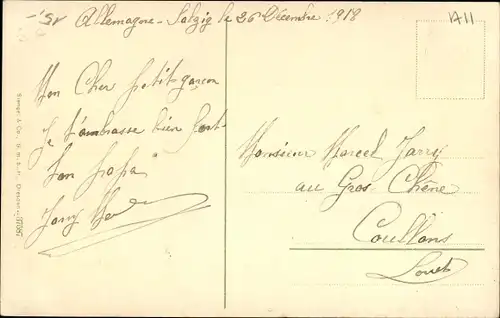 Allemagne - Salzig le 26 Décembre 1918
A11
Mon Cher petit garçon
Je t'embrasse bien fort
Ton papa
Jarry
Monsieur Marcel Jarry
au Gros Chêne
Coullons
Loiret
Stengel & Co., G.m.b.H., Dresden